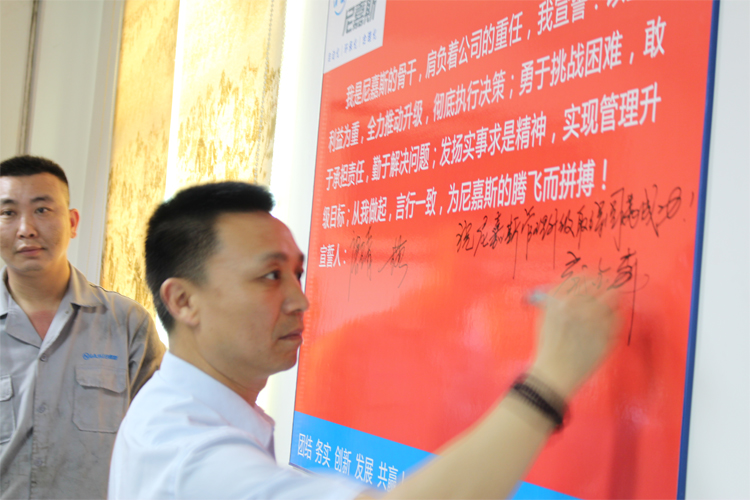 尼嘉斯
我是尼嘉斯的骨干，肩负着公司的重任，我宣誓：以
利益为重，全力推动升级，彻底执行决策；勇于挑战困难，敢
于承担责任，勤于解决问题；发扬实事求是精神，实现管理升
级目标；从我做起，言行一致，为尼嘉斯的腾飞而拼搏！
宣誓人：
团结 务实 创新 发展 共赢！